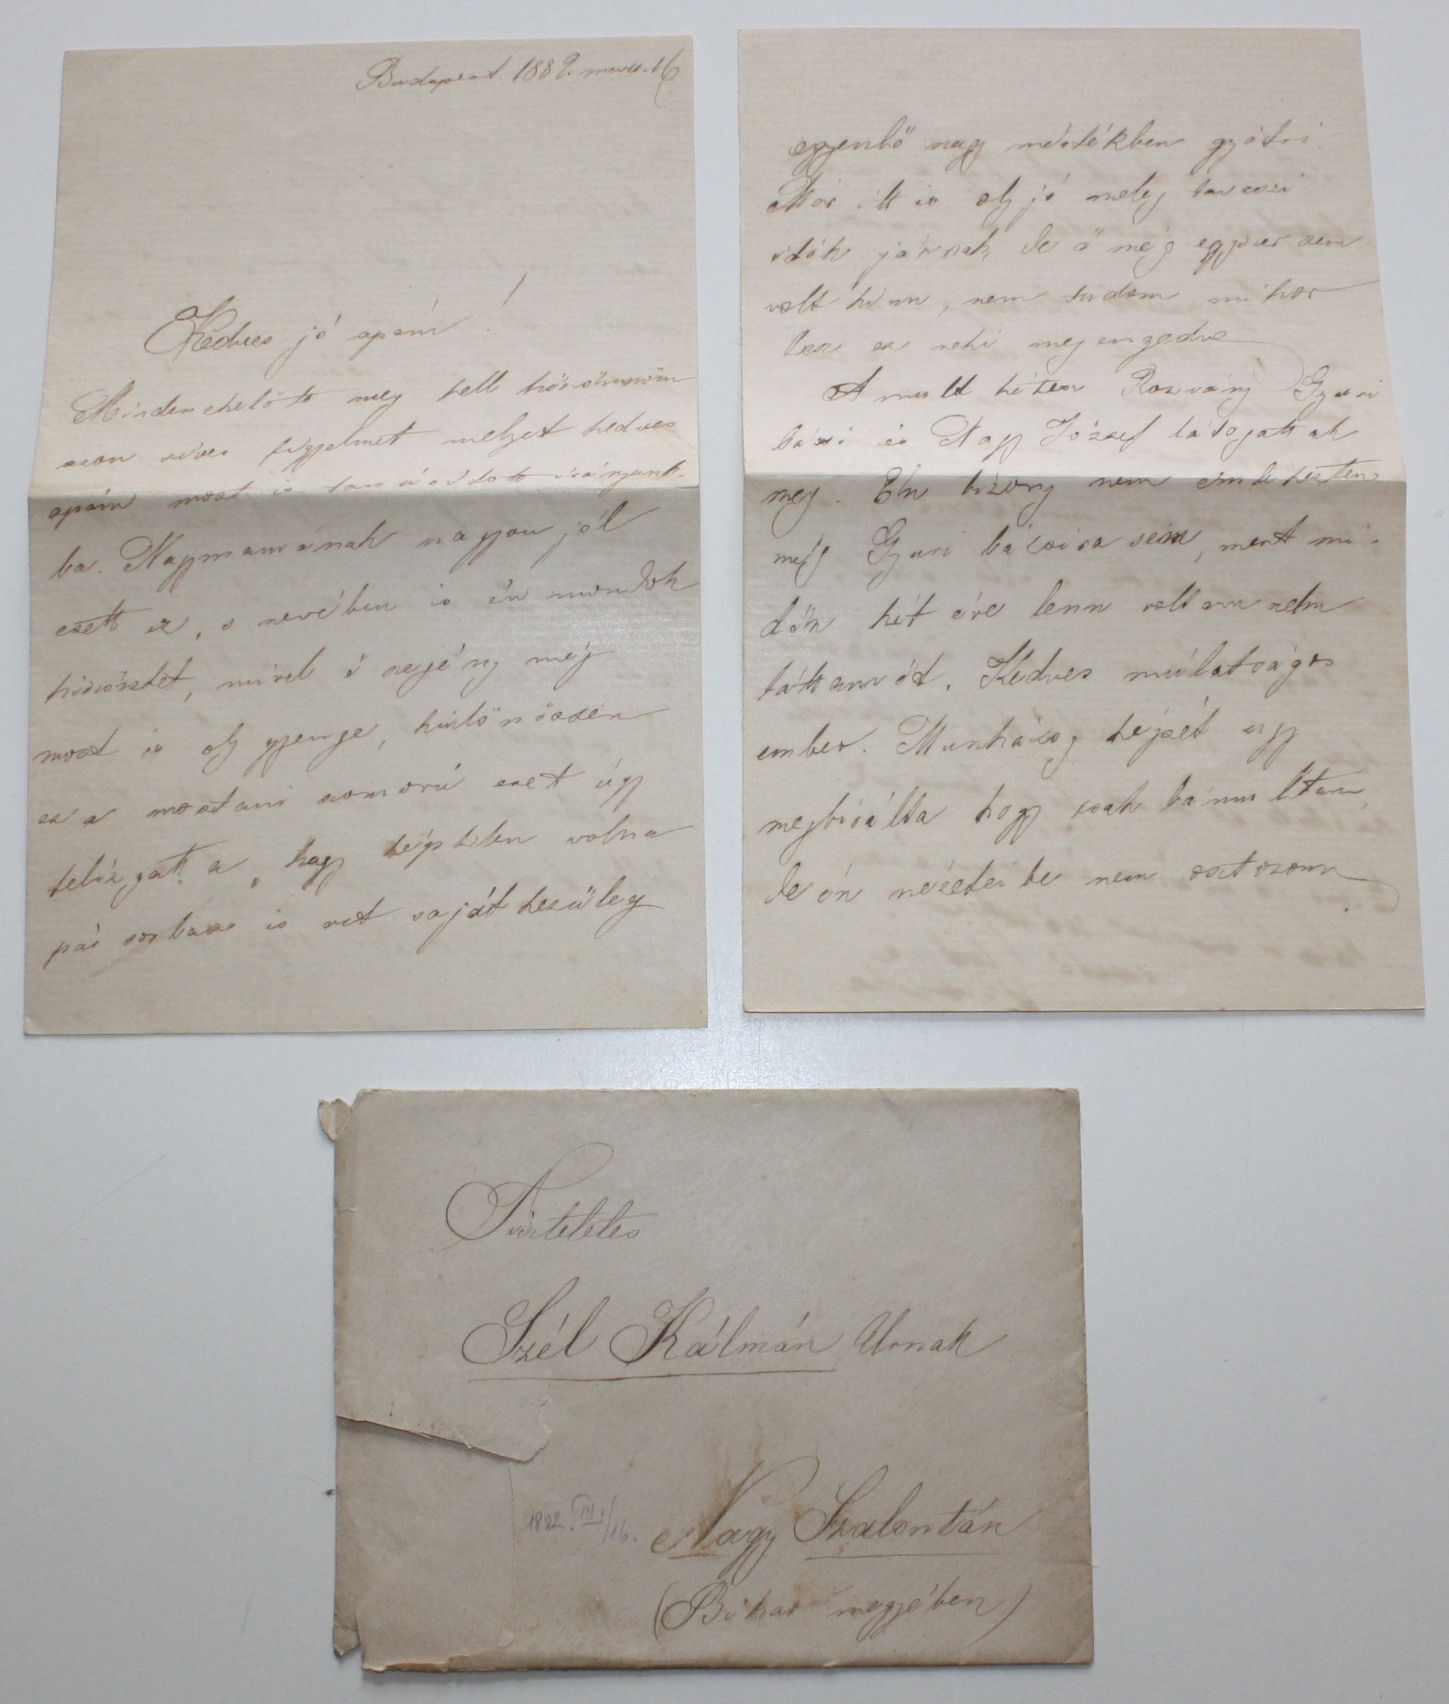 Budapest. 1882. marcz. 16
Kedves jó apám!
Mindenekelőtt meg kell köszönnöm
azon szíves figyelmet melyet kedves
apám most is tanúsított irányunk-
ba. Nagymamának nagyon jól
esett ez, s nevében is én mondok
köszönetet, mivel ő szegény még
most is oly gyenge, különössen
ez a mostani szomorú eset úgy
felizgatta, hogy képtelen volna
pár sorban is ezt sajátkezüleg
egyenlő nagy mértékben gyótri.
Már itt is oly jó meleg tavaszi
idők járnak de ő még egyszer sem
volt kinn, nem tudom mikor
lesz ez neki megengedve
A mult héten Rozvány Gyuri
bácsi és Nagy József látogattak
meg. Én bizony nem emlékeztem
még Gyuri bácsira sem, mert mi-
dőn két éve lenn voltam nem
láttam őt. Kedves múlatságos
ember. Munkácsy képét ugy
megbirálta hogy csak bámultam,
de én nézeteibe nem osztozom
Tiszteletes
Szél Kálmán Urnak
1882. III/16.
Nagy Szalontán
(Bihar megyében)